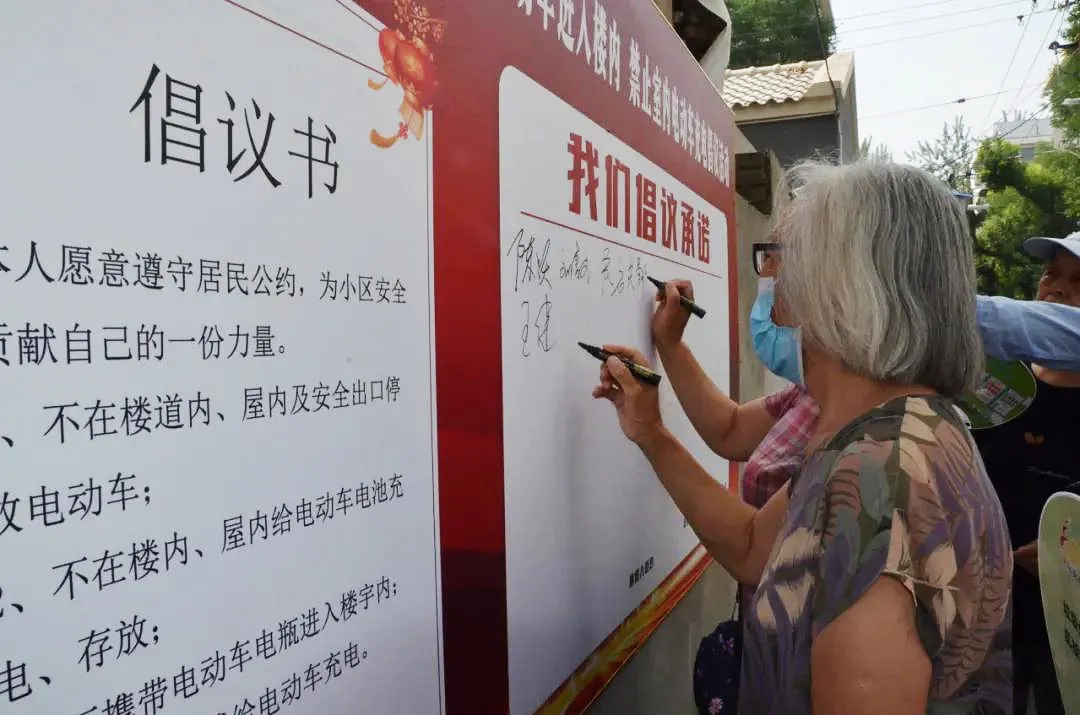 动车进入楼内 禁止室内电动车充电倡议活动
倡议书
本人愿意遵守居民公约，为小区安全
贡献自己的一份力量。
、不在楼道内、屋内及安全出口停
放电动车；
、不在楼内、屋内给电动车电池充
电、存放；
携带电动车电瓶进入楼宇内；
给电动车充电。
我们倡议承诺
陈
王建